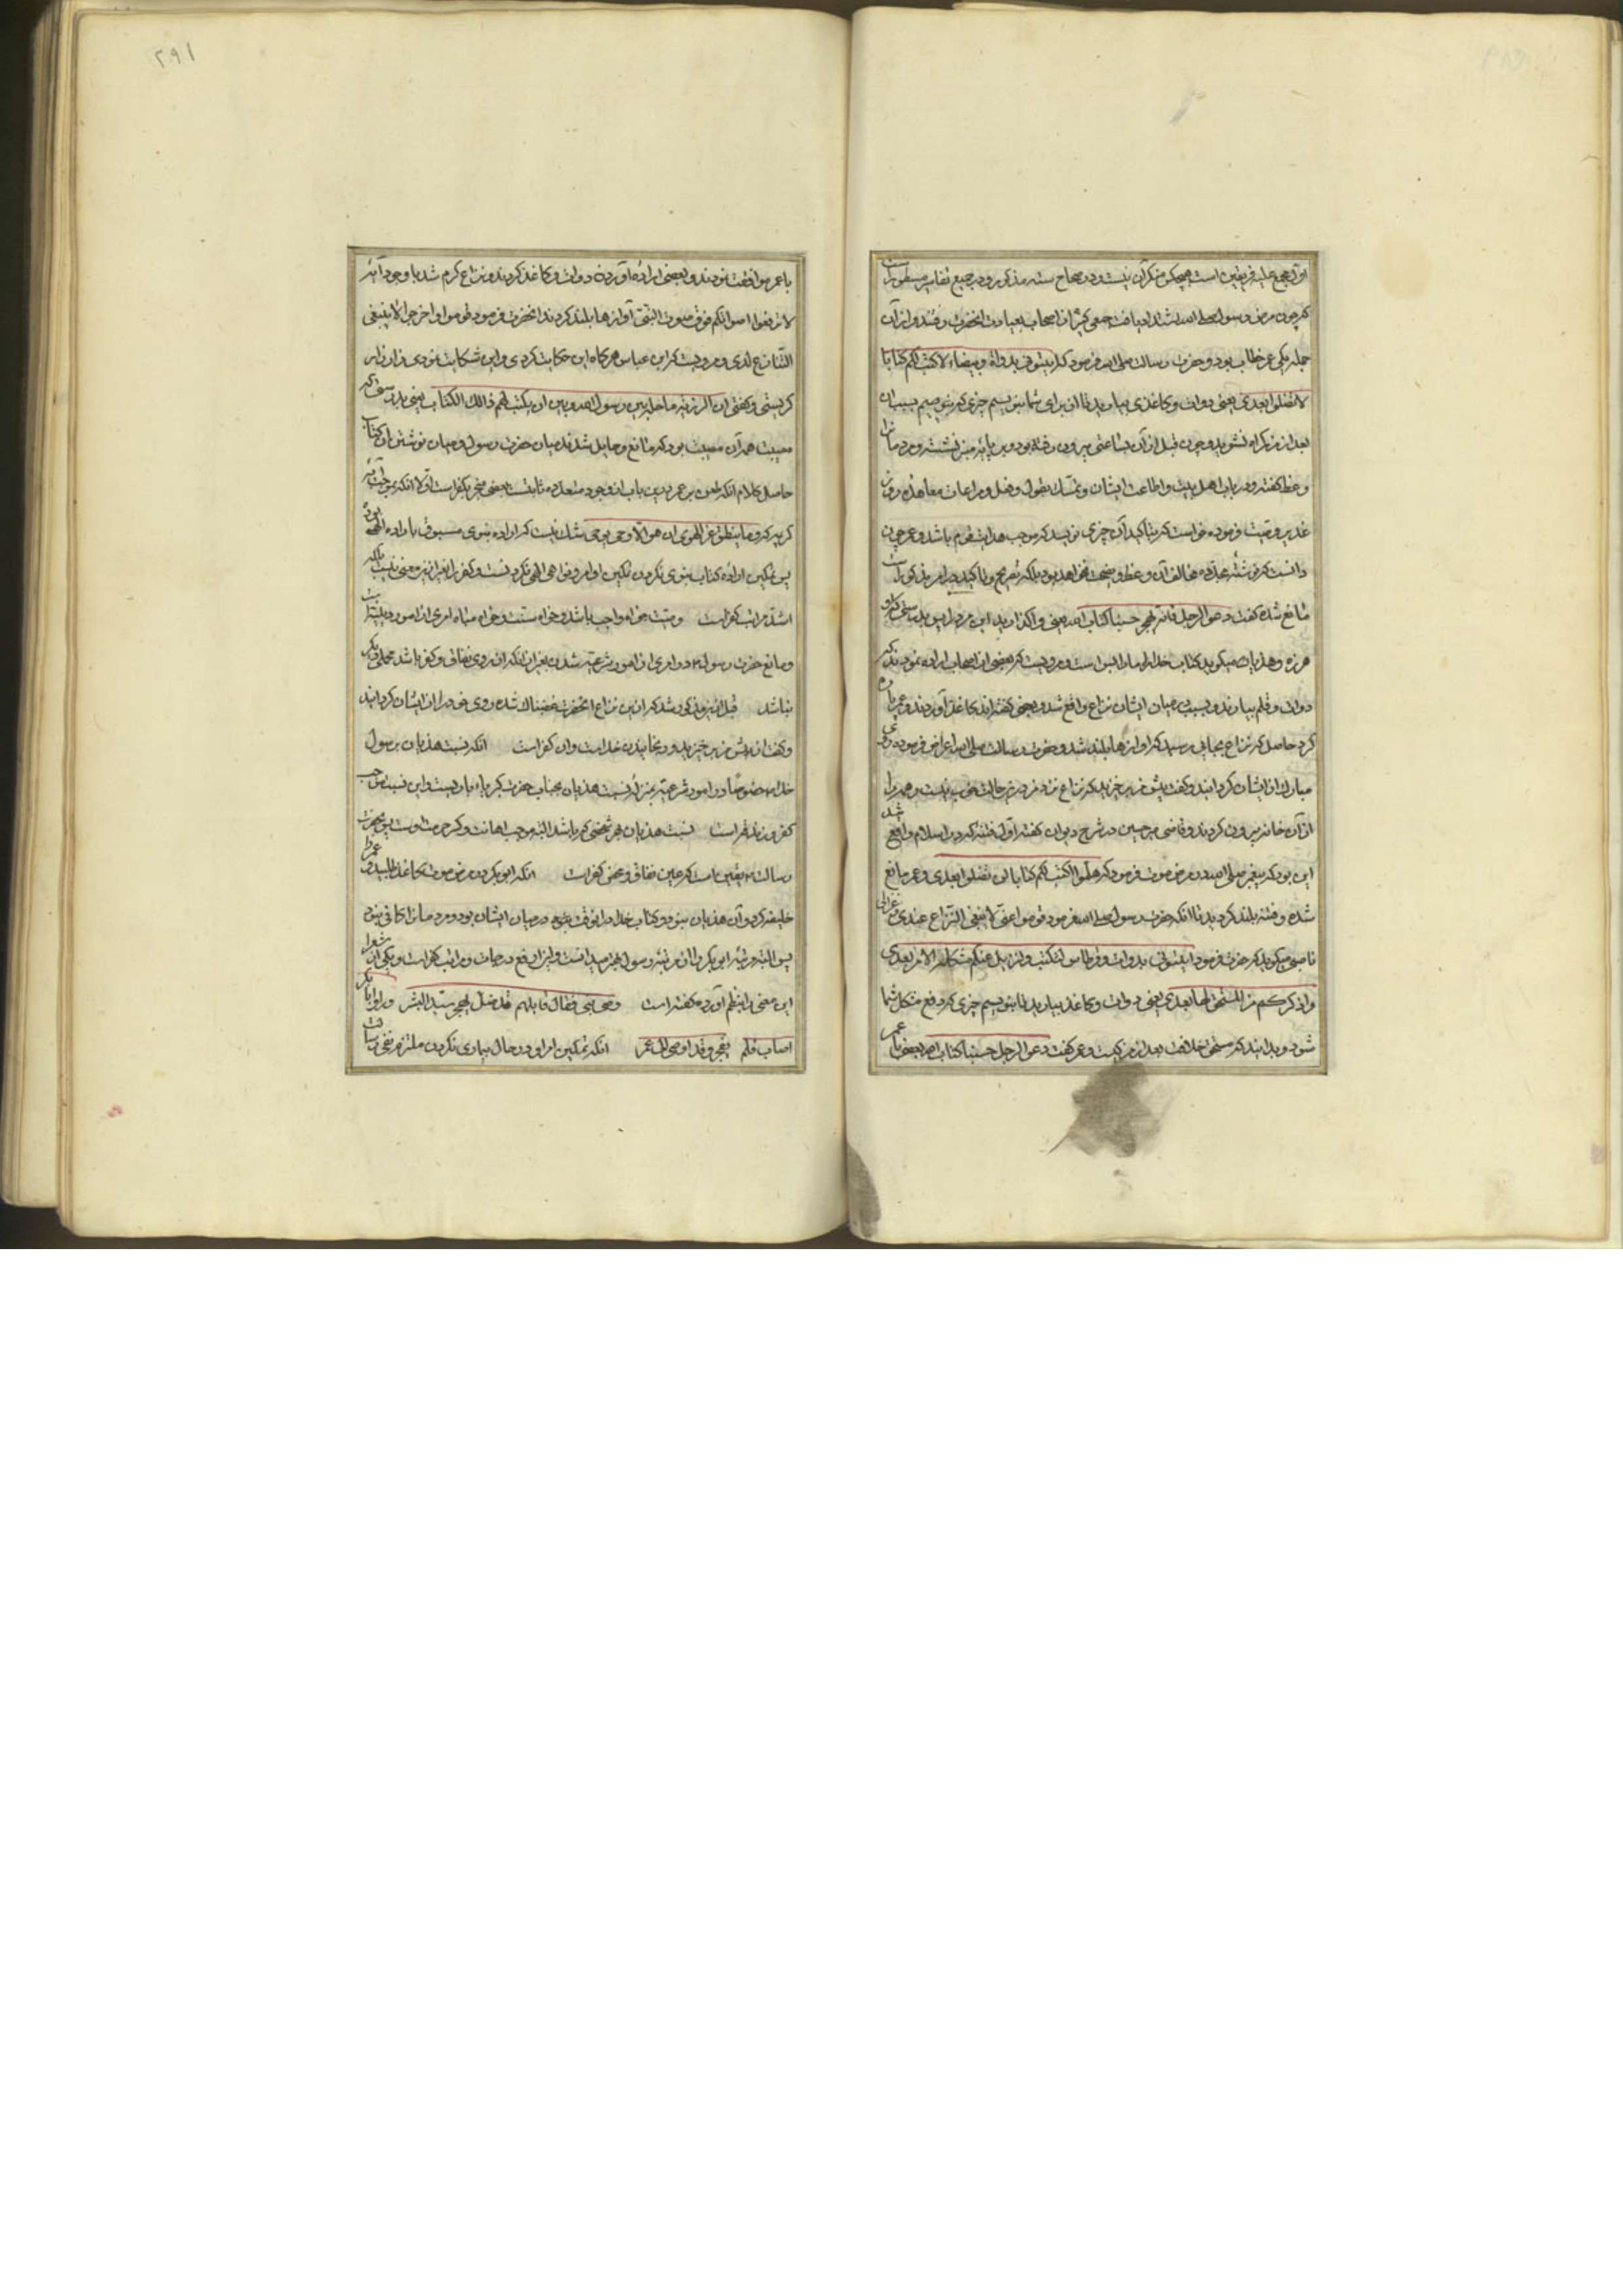 اول مجمع علیه فریقین است هیچکس منکر آن نیست و در صحاح سته مذکور و در جمیع تفاسیر مسطور است
که چون مرض رسول صلی الله اشتداد یافت جمعی کثیر از اصحاب بعیادت آنحضرت رفتند و از آن
جمله یکی عمر خطاب بود و حضرت رسالت صلی الله فرمود که ایتونی بدواة و بیضاء لاکتب لکم کتابا
لا تضلوا بعدی یعنی دوات و کاغذی بیارید تا از برای شما بنویسم چیزی که بسبب آن
بعد از من گراه نشوید و چون قبل از آن بساعتی بیرون رفته بود و بر پایه منبر نشسته و مردمانرا
وعظ گفته و در باب اهل بیت و اطاعت ایشان و تمسک بقول و فعل و مراعات معاهده روز
غدیر وصیت فرموده خواست که بتأکید آن چیزی نویسد که موجب هدایت قوم باشد و عمر چون
دانست که نوشته مخالف آن وعظ و نصیحت نخواهد بود بلکه تصریح و تأکید مذکور است
مانع شده گفت دعوا الرجل فانه لیهجر حسبنا کتاب الله یعنی واگذارید این مرد را بدرستی که او
هرزه و هذیان میگوید کتاب خدا ما را بس است و مرویست که بعضی از اصحاب اراده نمودند که
دوات و قلم بیارند و بسببی میان ایشان نزاع واقع شد و بعضی گفته‌اند کاغذ آوردند و عمر پاره
کرد حاصل که نزاع بجایی رسید که آوازها بلند شد و حضرت رسالت صلی الله اعراض فرموده روی
مبارک از ایشان گردانید و گفت پیش من برخیزید که نزاع نزد من درین حالت خوب نیست و همه را
از آن خانه بیرون کردند و قاضی میر حسین در شرح دیوان گفته اول فتنه که در اسلام واقع شد
این بود که پیغمبر صلی الله در مرض موت فرمود که هلموا اکتب لکم کتابا لن تضلوا بعدی و عمر مانع
شده و فتنه بلند گردید تا آنکه حضرت رسول صلی الله فرمود قوموا عنی لا ینبغی النزاع عندی و غزالی
ناصبی میگوید که حضرت فرمود ایتونی بدوات و قرطاس لاکتب و لازیل عنکم مشکل الامر بعدی
واذکر لکم من المستحق لها بعدی یعنی دوات و کاغذ بیارید تا بنویسم چیزی که رفع مشکل شما
شود و بدانید که مستحق خلافت بعد از من کیست و عمر گفت دعوا الرجل حسبنا کتاب الله بعضی با عمر
۲۹۱
با عمر موافقت نمودند و بعضی اراده آوردن دوات و کاغذ کردند و نزاع گرم شد با وجود آیه
لا ترفعوا اصواتکم فوق صوت النبی آوازها بلند کردند آنحضرت فرمود قوموا و اخرجوا لا ینبغی
التنازع لدی و مرویست که ابن عباس هرگاه این حکایت کردی و این شکایت نمودی زار زار
گریستی و گفتی ان الرزیة ما حال بین رسول الله و بین ان یکتب لهم ذلک الکتاب یعنی بدرستی که
مصیبت همه آن مصیبت بود که مانع و حایل شدند میان حضرت رسول و میان نوشتن آن کتاب
حاصل کلام آنکه طعن بر عمر درین باب از وجوه متعدده ثابتست بعضی منجر بکفر است اولا آنکه بموجب آیه
کریمه که و ما ینطق عن الهوی ان هو الا وحی یوحی شک نیست که اراده نبوی مسبوق باراده الهی بود
پس تمکین اراده کتاب نبوی نکردن تمکین اوامر و نواهی الهی نکردنست و کفر را بغیر ازین معنی نیست بلکه
اشد مراتب کفر است و وصیت خواه واجب باشد و خواه سنت و خواه مباه امری از امور دینیه است
و مانع حضرت رسول در امری از امور شرعیه شدن بغیر از آنکه از روی نفاق و کفر باشد محملی دیگر
نباشد قبل ازین مذکور شد که ازین نزاع آنحضرت غضبناک شده روی خود را از ایشان گردانید
و گفت از پیش من برخیزید و رنجانیدن خداست و آن کفر است آنکه نسبت هذیان برسول
خدا خصوصا در امور شرعیه بمنزله نسبت هذیان بجناب حضرت کبریاء باریست و این نسبت موجب
کفر و زندقه است نسبت هذیان بهر شخصی که باشد البته موجب اهانت و کسر حرمت اوست پس بحضرت
رسالت بیقین است که عین نفاق و محض کفر است آنکه ابوبکر در مرض موت کاغذ طلبید و عمر را
خلیفه کرد و آن هذیان نبود و کتاب خدا در میان ایشان بود و مردمانرا کافی نبود
پس البته مرتبه ابوبکر را از مرتبه رسول بهتر میدانست و این ارفع درجات و مراتب کفر است و یکی از شعرا
این معنی را بنظم آورده گفته است وصی النبی فقال قایلهم قد ضل یهجر سید البشر و رأوا ابا بکر
اصاب فلم یهجر و قد اوصی الی عمر آنکه تمکین امر او در حال بیماری نکردن ملتزم نفی رسالت